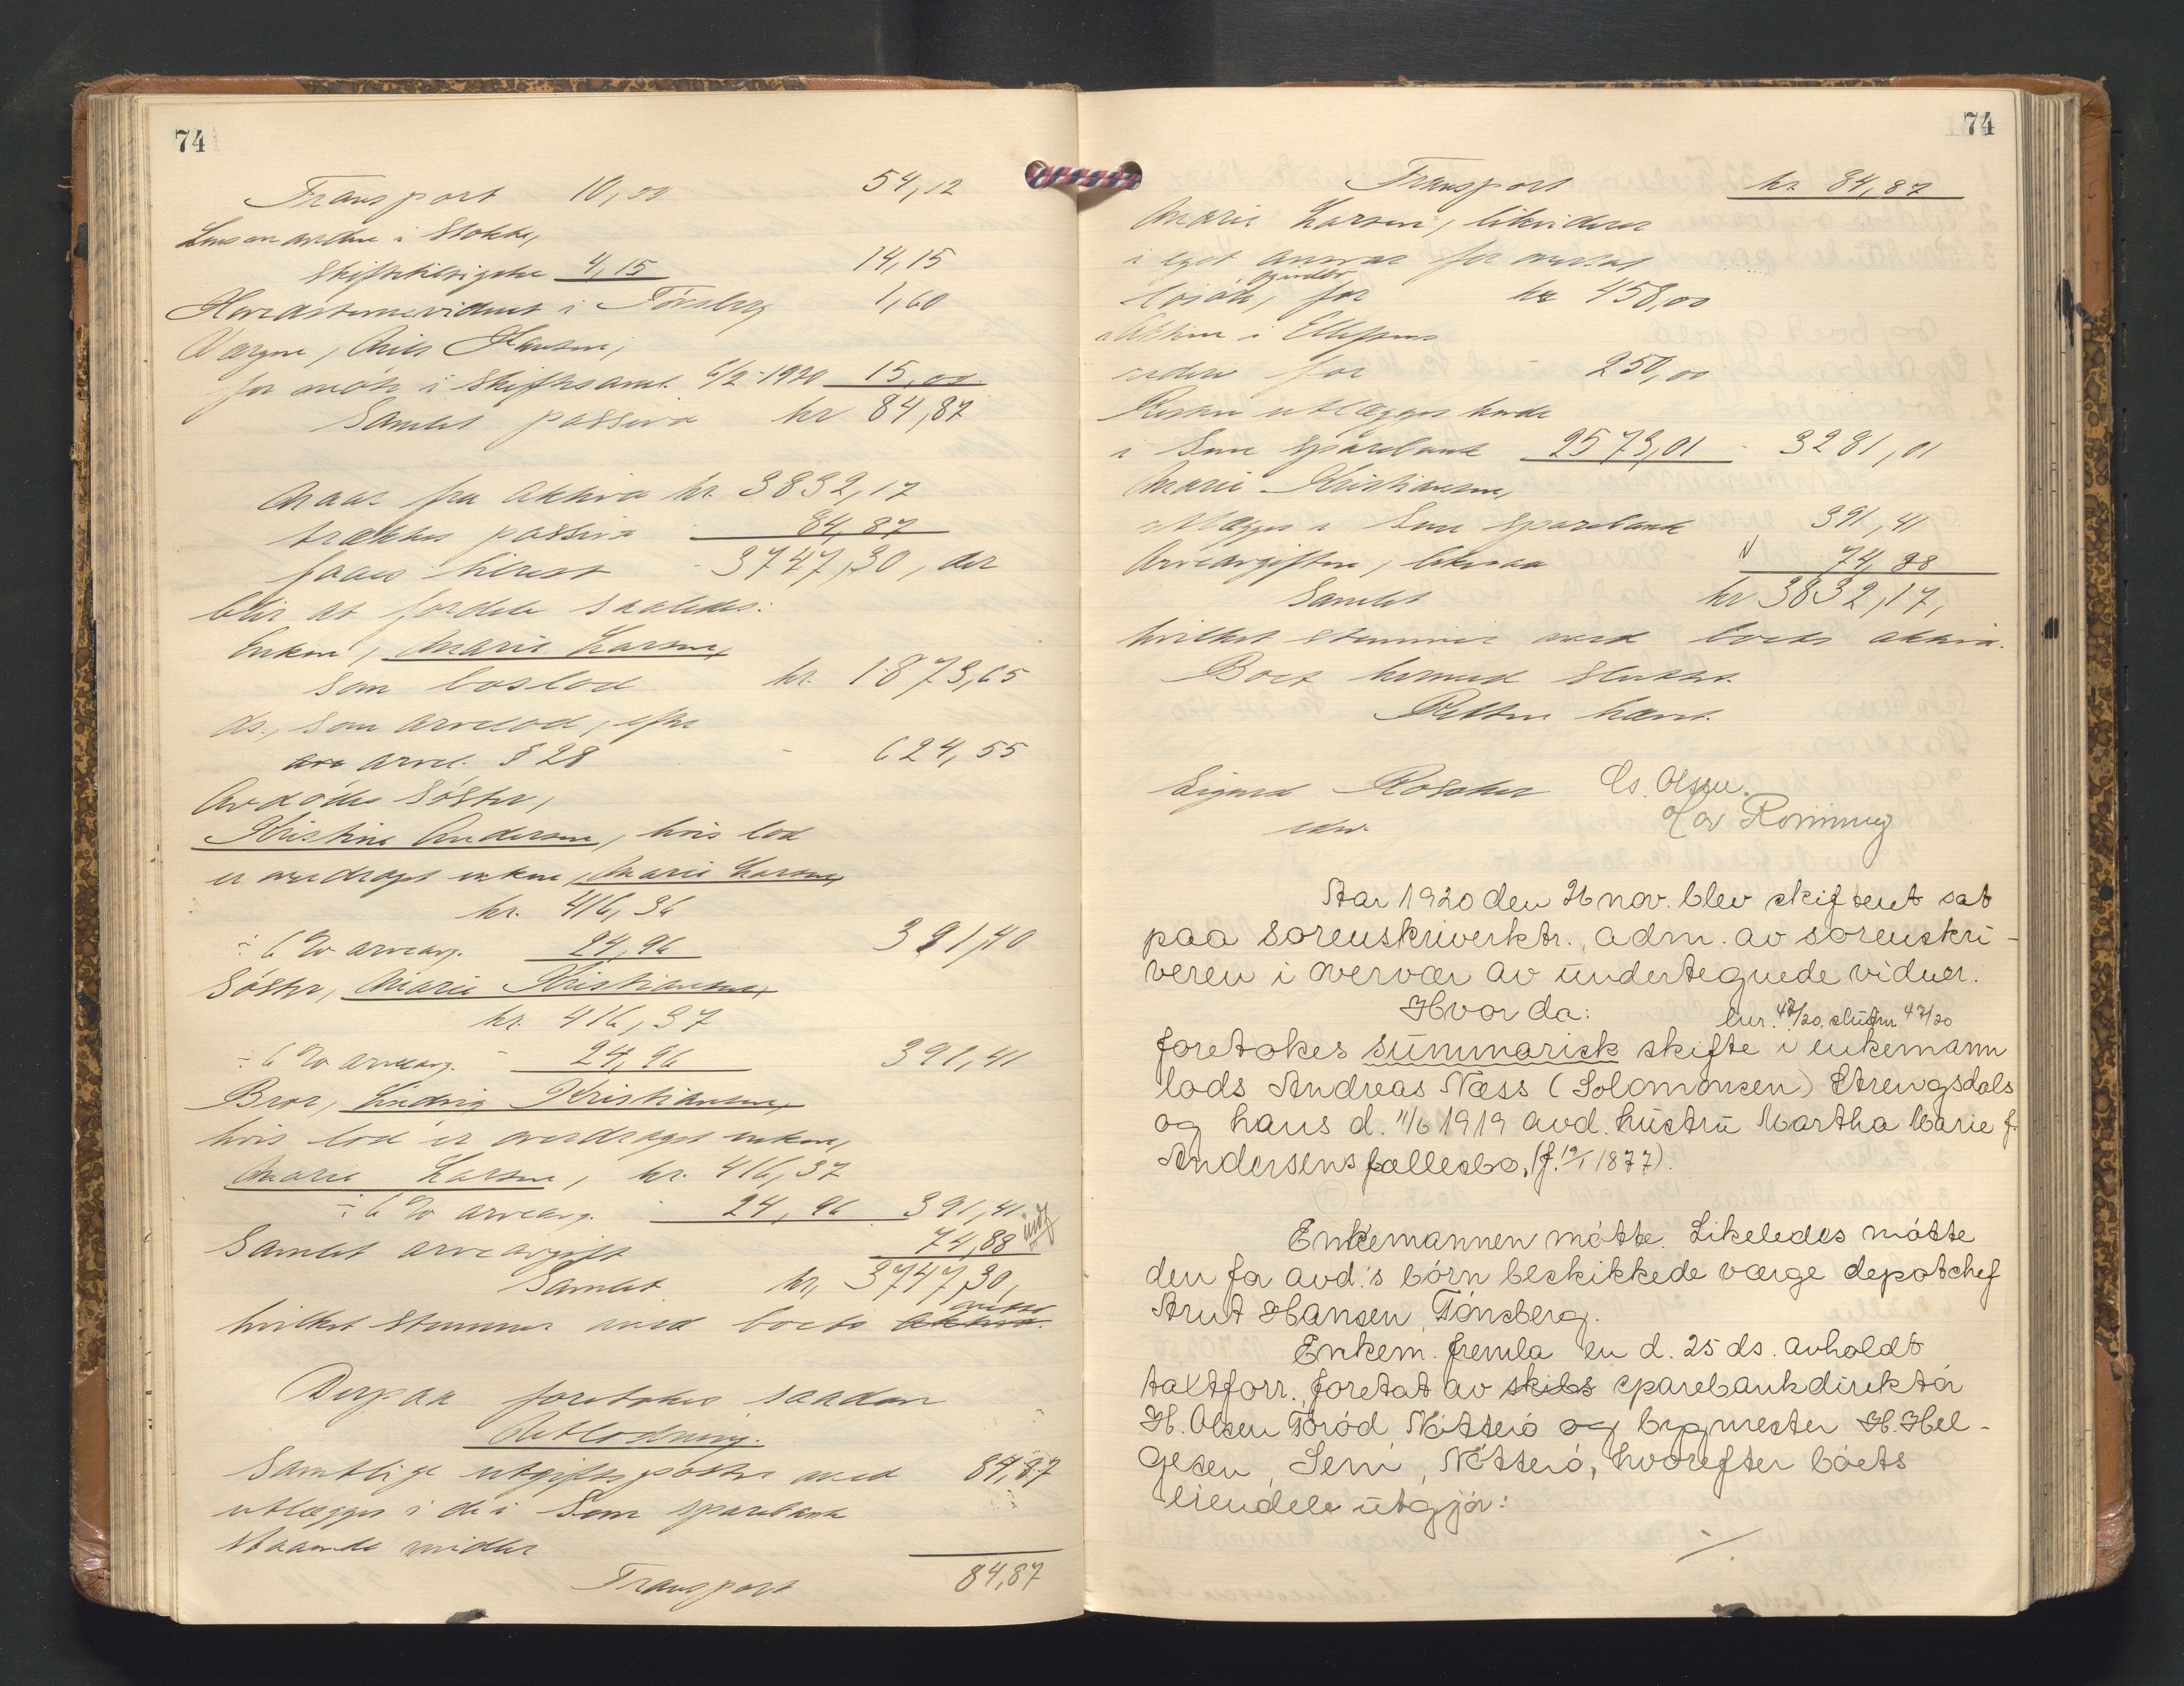 74
Transport 10,00 54,12
Lensmanden i Stokke,
skiftetilsigelse 4,15 14,15
Hovedstevnevidnet i Tönsberg 1,60
Værgen, Hansen,
for møte i skiftesaml. 6/2-1920 15,00
Samlet passiva kr 84,87
Naar fra aktiva kr. 3832,17
trækkes passiva - 84,87
faaes hvilket - 3747,30, der
blir at fordele saaledes:
Enken, Marie Larsen,
som boslod kr. 1873,65
ds., som arvelod, efter
arvel. § 28 - 624,55
Avdødes söster,
Kristine Andersen, hvis lod
er overdraget enken, Marie Larsen,
kr. 416,36
÷ 6 % arveavg. 24,96 391,40
Söster, Marie Kristiansen,
kr. 416,37
÷ 6 % arveavg. - 24,96 391,41
Bror, Ludvig Kristiansen,
hvis lod er overdraget enken,
Marie Larsen, kr. 416,37
÷ 6 % arveavg. - 24,96 391,41
Samlet arveavgift 74,88
Samlet kr. 3747,30,
hvilket stemmer med boets netto aktiva.
Derpaa foretokes saadan
Utlodning.
Samtlige utgiftsposter med 84,87
utlægges i de i Sem sparebank
staaende midler
Transport 84,87
74
Transport kr 84,87
Marie Larsen, likviderer
i eget ansvar for overtat
lösöre, for kr 458,00
aktien i Ellefsens
rederi for - 250,00
Resten utlægges hende
i Sem sparebank 2573,01 - 3281,01
Marie Kristiansen,
utlægges i Sem sparebank 391,41
Arveavgiften, likesaa 74,88
Samlet kr 3832,17,
hvilket stemmer med boets aktiva.
Boet hermed sluttet.
Retten hævet.
Sigurd Rosoker Cs. Olsen.
edv. Ronning
Aar 1920 den 26 nov. blev skifteret sat
paa sorenskriverktr., adm. av sorenskri-
veren i overvær av undertegnede vidner.
Hvor da:
foretokes summarisk skifte i enkemann
lods Andreas Næss (Solomonsen) Strengsdals
og hans d. 11/6 1919 avd. hustru Martha Marie f.
Andersens fællesbo, (f. 19/1 1877).
Enkemannen møtte. Likeledes møtte
den for avd.'s börn beskikkede værge depotchef
Arnt Hansen, Tönsberg.
Enkem. fremla en d. 25 ds. avholdt
taxtforr. foretat av skibs sparebankdirektör
H. Olsen Töröd Nötterö og bygmester H. Hel-
gesen, Semi, Nötterö, hvorefter boets
eiendele utgjör: